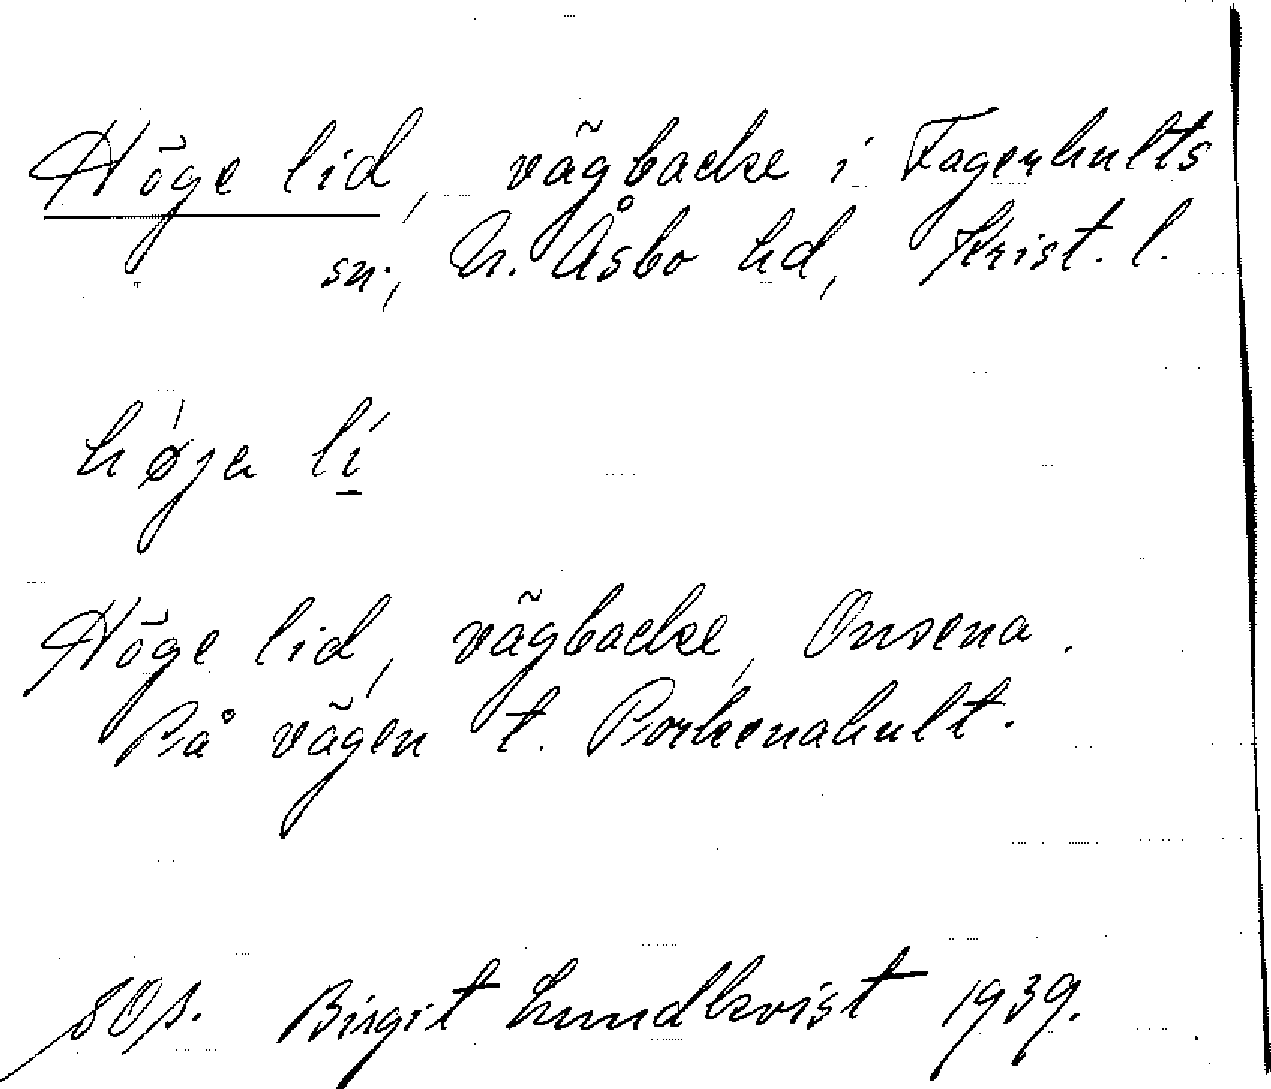 Höge lid, vägbacke i Fagerhults
sn., N. Åsbo hd, Krist. l.
høja lí
Höge lid, vägbacke, Onsena.
På vägen t. Porkenahult.
Birgit Lundkvist 1939.